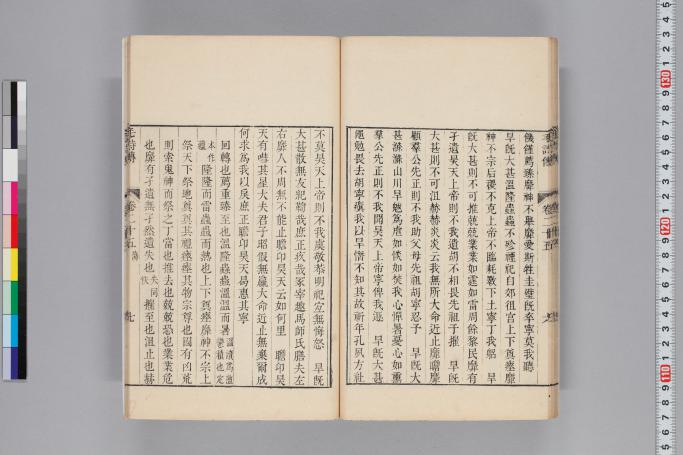 饑饉薦臻靡神不舉靡愛斯牲圭璧既卒寧莫我聽
旱既大甚溫隆蟲蟲不殄禋祀自郊徂宮上下奠瘞靡
神不宗后稷不克上帝不臨耗斁下土寧丁我躬　旱
既大甚則不可推兢兢業業如霆如雷周餘黎民靡有
孑遺昊天上帝則不我遺胡不相畏先祖于摧　旱既
大甚則不可沮赫赫炎炎云我無所大命近止靡瞻靡
顧羣公先正則不我助父母先祖胡寧忍予　旱既大
甚滌滌山川旱魃為虐如惔如焚我心憚暑憂心如熏
羣公先正則不我聞昊天上帝寧俾我遯　旱既大甚
黽勉畏去胡寧瘨我以旱憯不知其故祈年孔夙方社
不莫昊天上帝則不我虞敬恭明祀宜無悔怒　旱既
大甚散無友紀鞫哉庶正疚哉冢宰趣馬師氏膳夫左
右靡人不周無不能止瞻卬昊天云如何里　瞻卬昊
天有嘒其星大夫君子昭假無贏大命近止無棄爾成
何求為我以戾庶正瞻卬昊天曷惠其寧
回轉也薦重臻至也溫隆蟲蟲溫溫而暑
隆隆而雷蟲蟲而熱也上下奠瘞靡神不宗上
祭天下祭地奠其禮瘞其物宗尊也國有凶荒
則索鬼神而祭之丁當也推去也兢兢恐也業業危
也靡有孑遺無孑然遺失也摧至也沮止也赫
毛詩傳
卷二十五